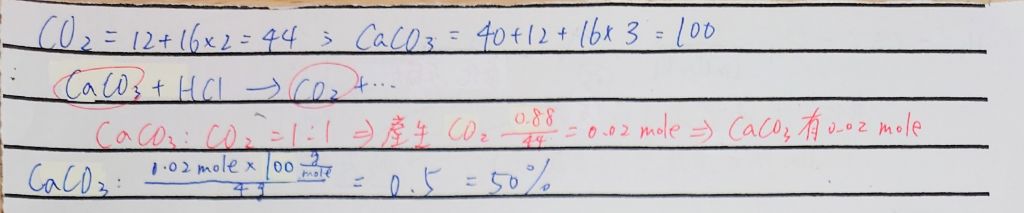 CO₂ = 12+16×2 = 44 ; CaCO₃ = 40+12+16×3 = 100
CaCO₃ + HCl → CO₂ + ...
CaCO₃ : CO₂ = 1 : 1 ⇒ 產生 CO₂ 0.88/44 = 0.02 mole ⇒ CaCO₃ 有 0.02 mole
CaCO₃ : 0.02 mole × 100 g/mole / 4g = 0.5 = 50%